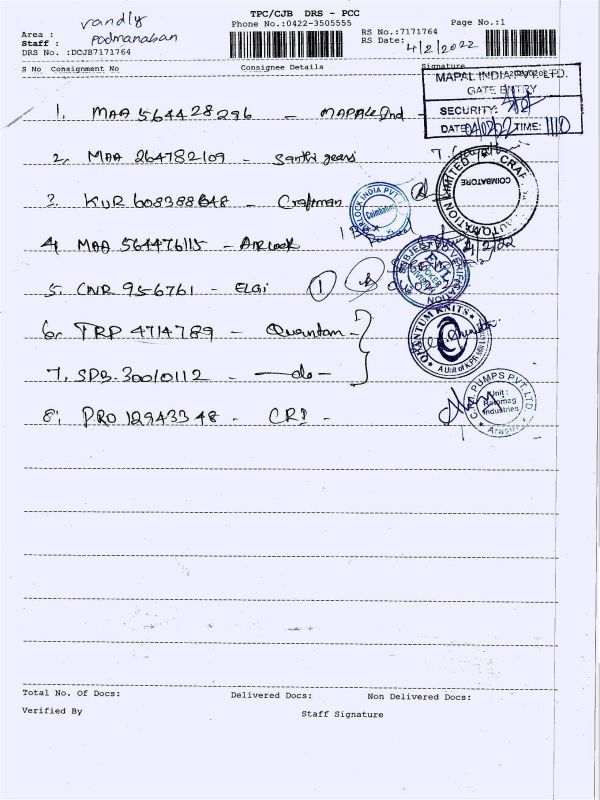 TPC/CJB DRS - PCC
Phone No.:0422-3505555
Page No.:1
vandly
Area :
Padmanaban
Staff :
DRS No. :DCJB7171764
RS No.:7171764
RS Date: 4/2/2022
S No Consignment No Consignee Details Signature
MAPAL INDIA PVT. LTD.
GATE ENTRY
SECURITY:
DATE: TIME: 1110
1. MAA 564428296 - MAPAL Ind
2. MAA 264782109 - Santhi gears
COIMBATORE
3. KUR - Craftman
AIRLOCK INDIA PVT
Coimbatore
4. MAA 564476115 - Airlock
5. CNR 956761 - ELGi 1
SUBJECT TO VERIFICATION
6. TRP 4714789 - Quantam
QUANTUM KNITS
7. SDB 30010112 - do -
8. PRO 12943348 - CRI -
PUMPS PVT. LTD
Unit :
Industries
Total No. Of Docs: Delivered Docs: Non Delivered Docs:
Verified By Staff Signature